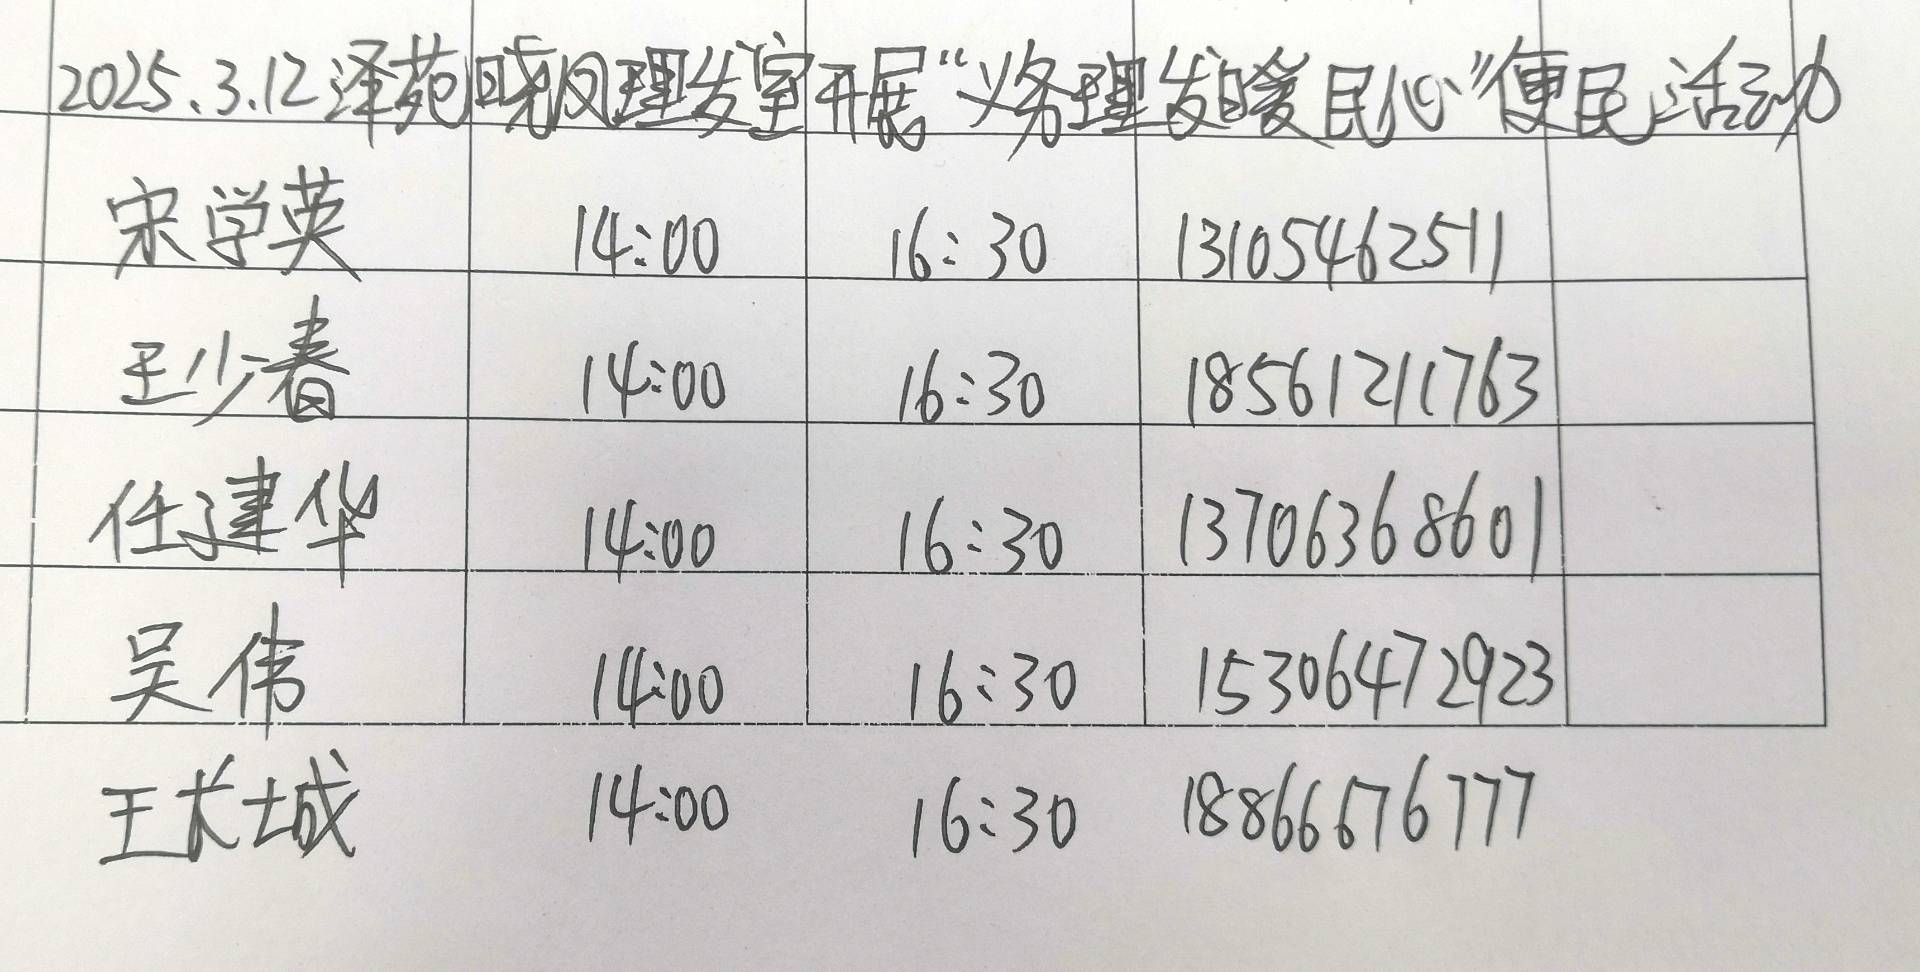 2025.3.12泽苑晓风理发室开展“义务理发暖民心”便民活动
宋学英 14:00 16:30 13105462511
王少春 14:00 16:30 18561211763
任建华 14:00 16:30 13706368601
吴伟 14:00 16:30 15306472923
王长城 14:00 16:30 18866676777